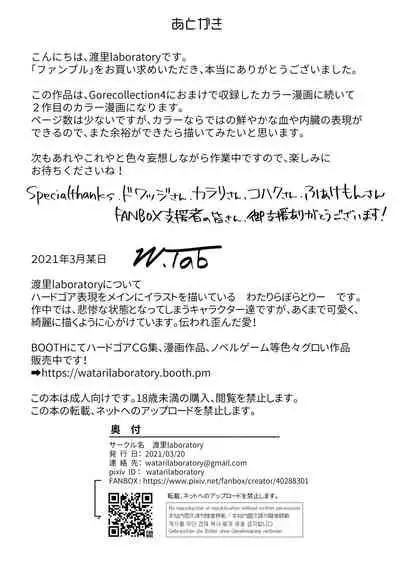 あとがき
こんにちは、渡里laboratoryです。
「ファンブル」をお買い求めいただき、本当にありがとうございました。
この作品は、Gorecollection4におまけで収録したカラー漫画に続いて
２作目のカラー漫画になります。
ページ数は少ないですが、カラーならではの鮮やかな血や内臓の表現が
できるので、また余裕ができたら描いてみたいと思います。
次もあれやこれやと色々妄想しながら作業中ですので、楽しみに
お待ちくださいね！
Specialthanks、ドワッジさん、カラリさん、コハクさん、ふぁけもんさん
FANBOX支援者の皆さん、御支援ありがとうございます！
2021年3月某日 W.Tab
渡里laboratoryについて
ハードゴア表現をメインにイラストを描いている　わたりらぼらとりー　です。
作中では、悲惨な状態となってしまうキャラクター達ですが、あくまで可愛く、
綺麗に描くように心がけています。伝われ歪んだ愛！
BOOTHにてハードゴアCG集、漫画作品、ノベルゲーム等色々グロい作品
販売中です！
➡https://watarilaboratory.booth.pm
この本は成人向けです。18歳未満の購入、閲覧を禁止します。
この本の転載、ネットへのアップロードを禁止します。
奥　付
サークル名　渡里laboratory
発 行 日： 2021/03/20
連 絡 先： watarilaboratory@gmail.com
pixiv ID： watarilaboratory
FANBOX：https://www.pixiv.net/fanbox/creator/40288301
転載、ネットへのアップロードを禁止します。
No reproduction or republication without written permission.